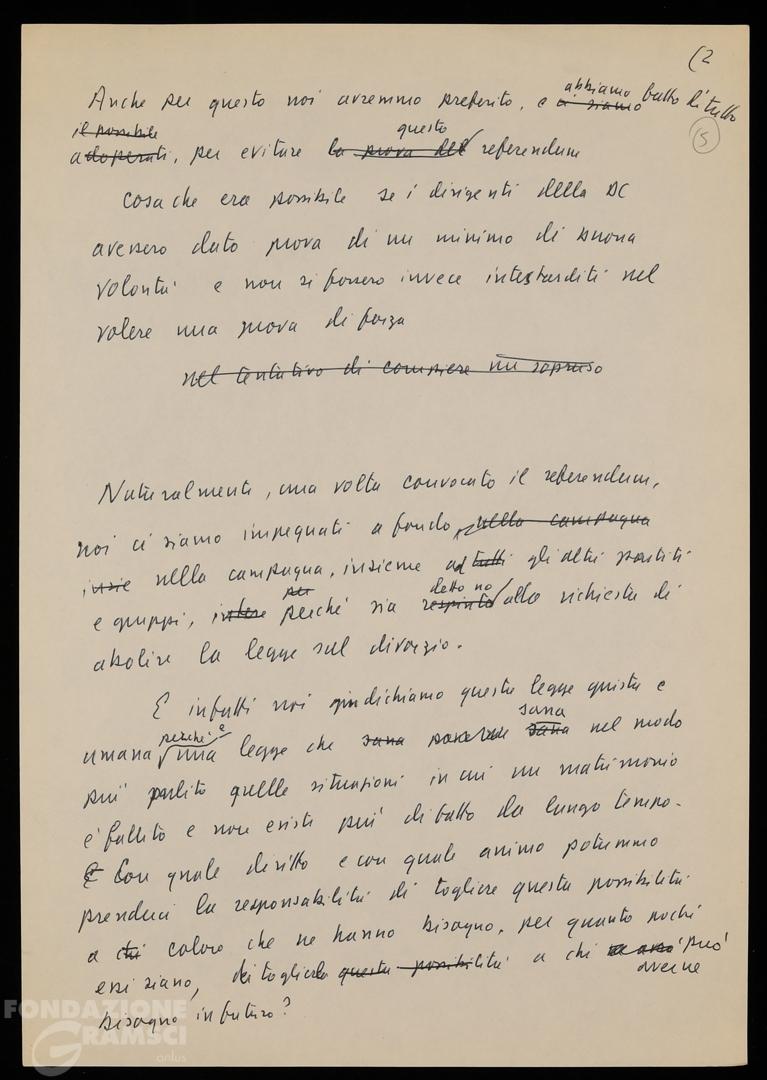 (2
Anche per questo noi avremmo preferito, e abbiamo ci siamo fatto di tutto
5
il possibile questo
adoperati, per evitare la prova del referendum
cosa che era possibile se i dirigenti della DC
avessero dato prova di un minimo di buona
volontà e non si fossero invece intestarditi nel
volere una prova di forza
nel tentativo di compiere un sopruso
Naturalmente, una volta convocato il referendum,
noi ci siamo impegnati a fondo, nella campagna
insie nella campagna, insieme ad tutti gli altri partiti
e gruppi, perché sia respinta detto no alla richiesta di
abolire la legge sul divorzio.
E infatti noi giudichiamo questa legge giusta e
umana perché è una legge che sana sana sana nel modo
più pulito quelle situazioni in cui un matrimonio
è fallito e non esiste più di fatto da lungo tempo.
E Con quale diritto e con quale animo potremmo
prenderci la responsabilità di togliere questa possibilità
a chi coloro che ne hanno bisogno, per quanto pochi
essi siano, di toglierla questa possibilità a chi può
averne
bisogno in futuro?
FONDAZIONE
GRAMSCI
onlus